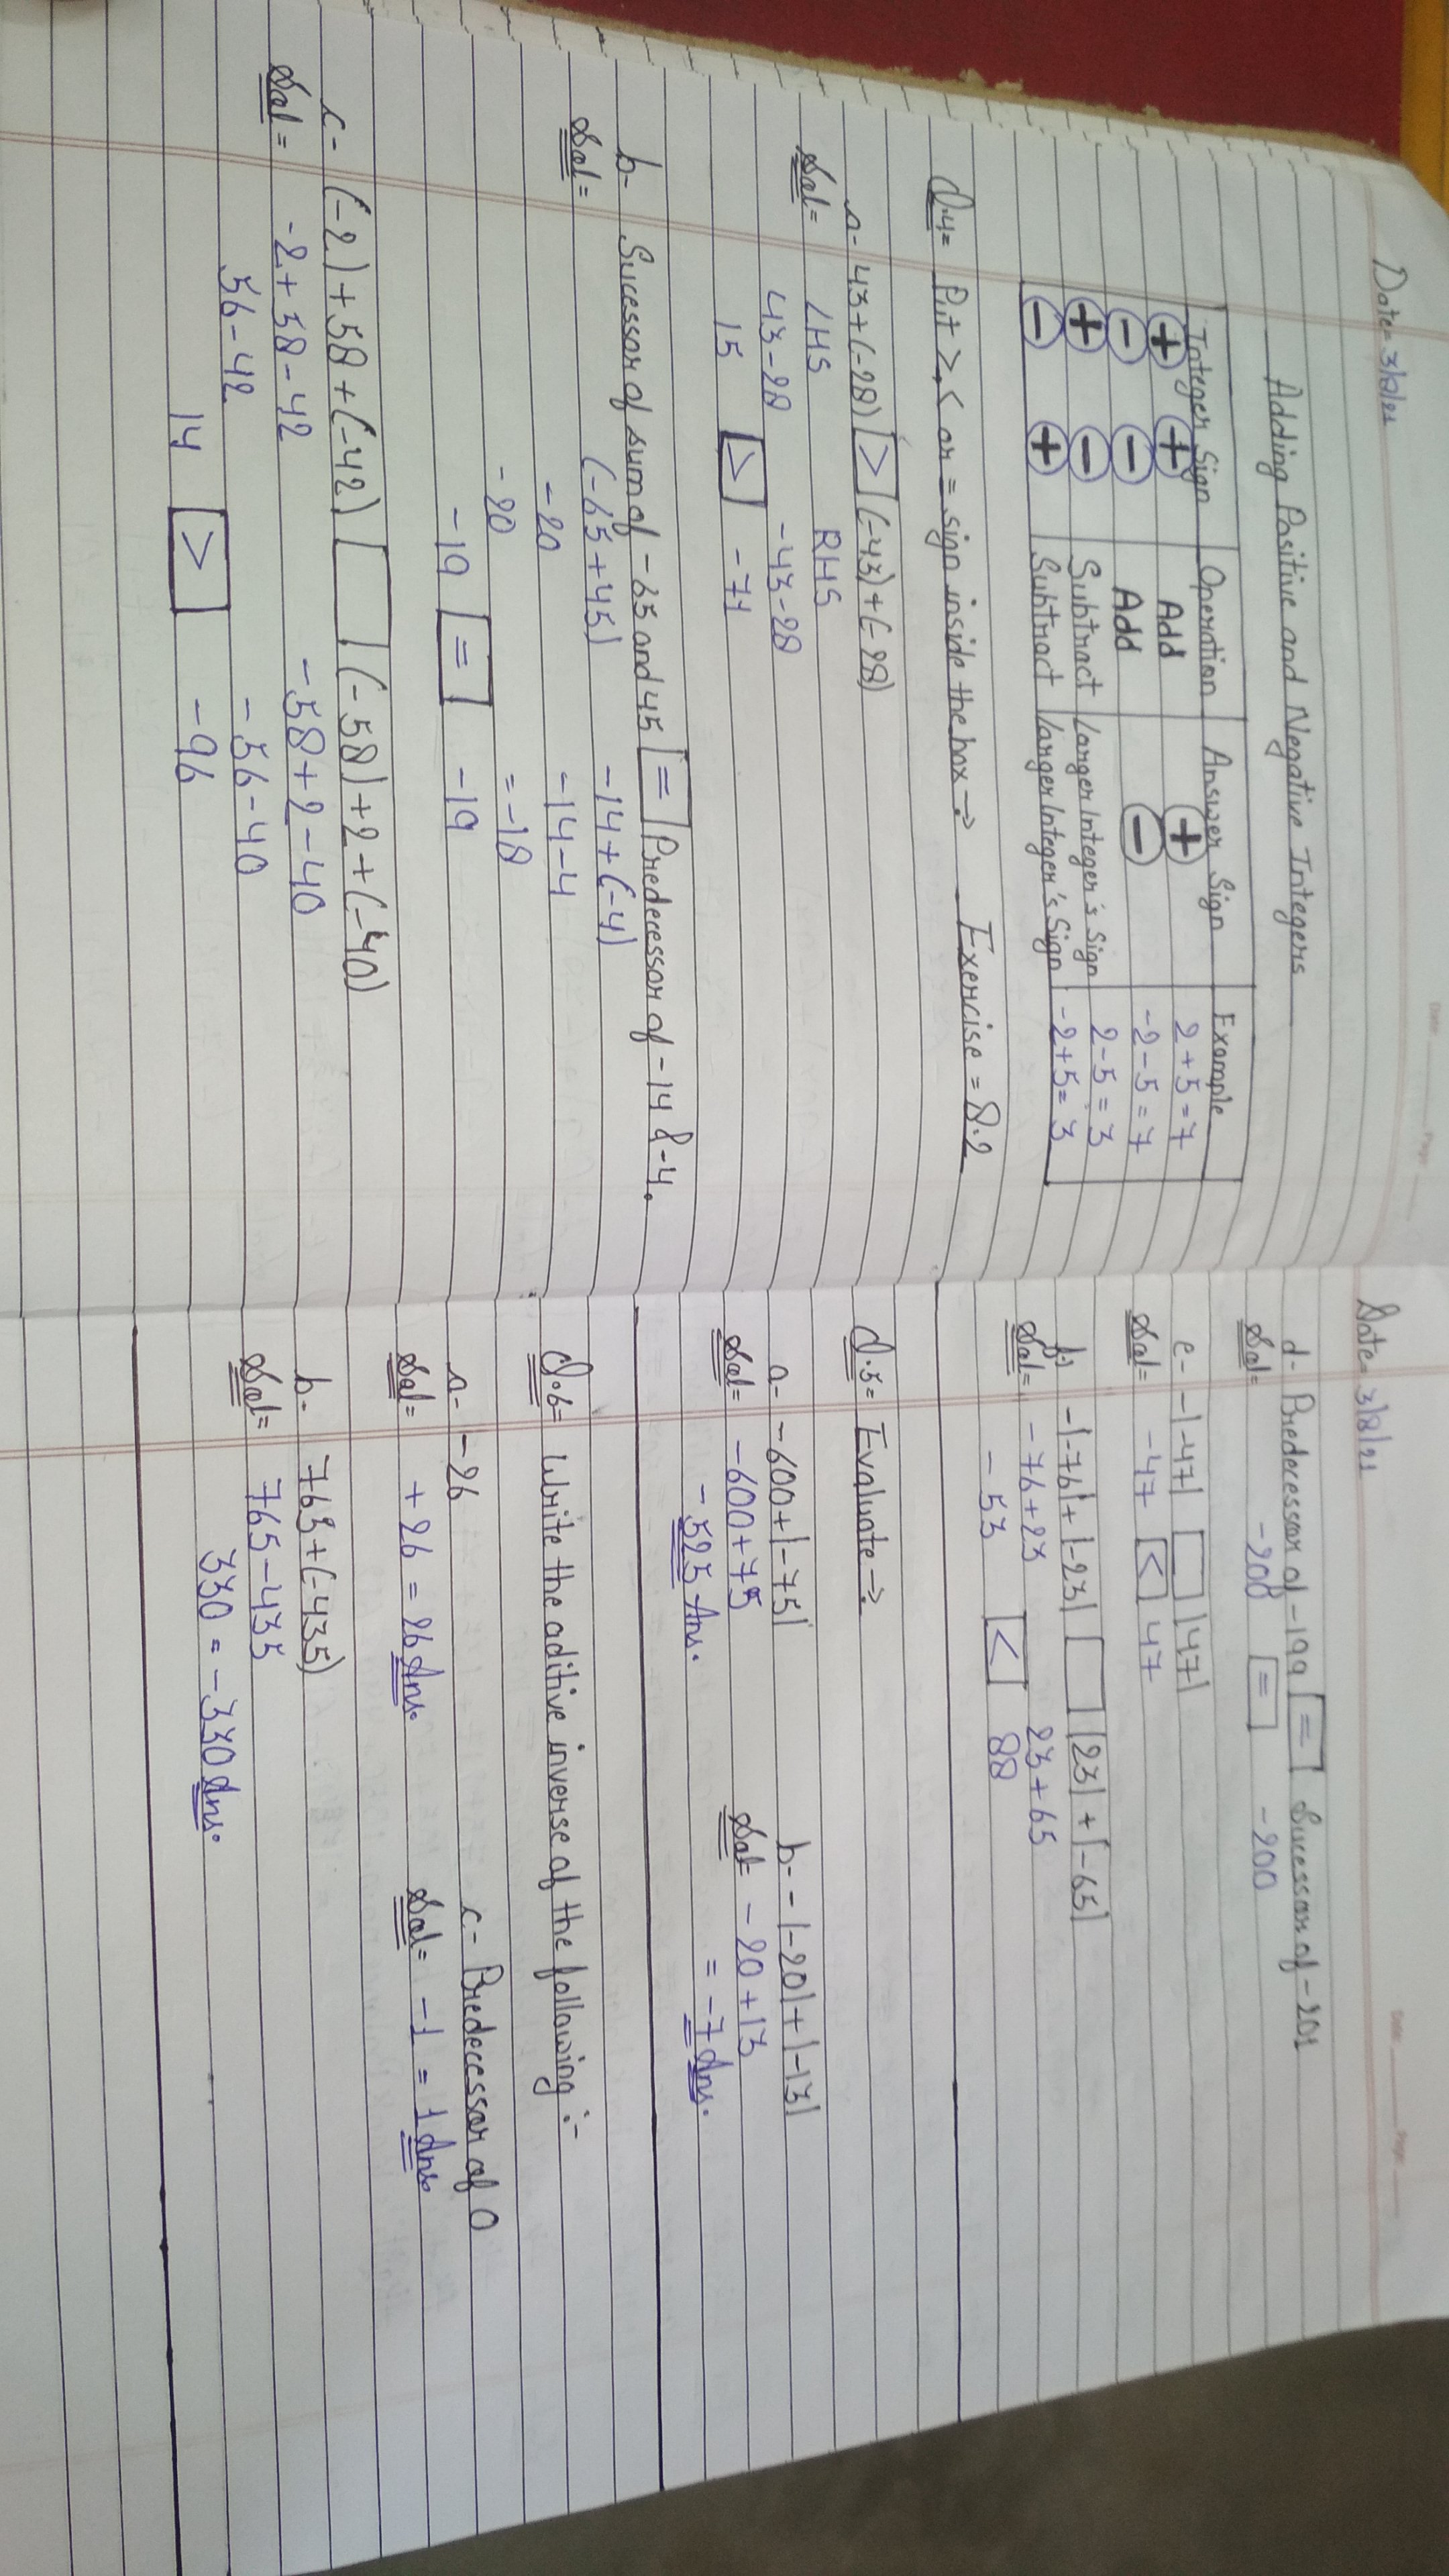 Date= 3/8/21
Adding Positive and Negative Integers
Integer Sign Operation Answer Sign Example
+ + Add + 2+5=7
- - Add - -2-5=7
+ - Subtract Larger Integer's Sign 2-5=3
- + Subtract Larger Integer's Sign -2+5=3
Exercise = 8.2
Q.4= Put >, < or = sign inside the box →
a- 43+(-28) > (-43)+(-28)
Sol= LHS RHS
43-28 -43-28
15 > -71
b- Sucessor of sum of -65 and 45 = Predecessor of -14 & -4.
Sol= (-65+45) -14+(-4)
-20 -14-4
-20 = -18
-19 = -19
c- (-2)+58+(-42) (-58)+2+(-40)
Sol= -2+58-42 -58+2-40
56-42 -56-40
14 > -96
Date= 3/8/21
d- Predecessor of -199 = Sucessor of -201
Sol= -200 = -200
e- -|-47| |47|
Sol= -47 < 47
f) -|-76|+|-23| |23|+|-65|
Sol= -76+23 23+65
-53 < 88
Q.5= Evaluate →
a- -600+|-75| b- -|-20|+|-13|
Sol= -600+75 Sol= -20+13
-525 Ans. = -7 Ans.
Q.6= Write the aditive inverse of the following :-
a- -26 c- Predecessor of 0
Sol= +26 = 26 Ans. Sol= -1 = 1 Ans.
b- 765+(-435)
Sol= 765-435
330 = -330 Ans.